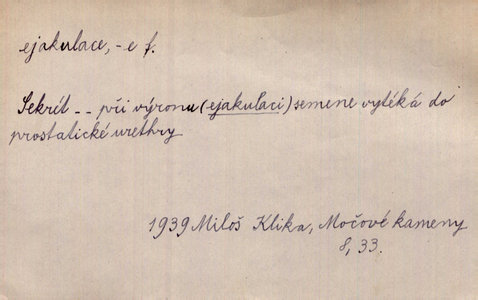 ejakulace, -e f.
Sekrét -- při výronu (ejakulaci) semene vytéká do
prostatické urethry
1939 Miloš Klika, Močové kameny
8, 33.